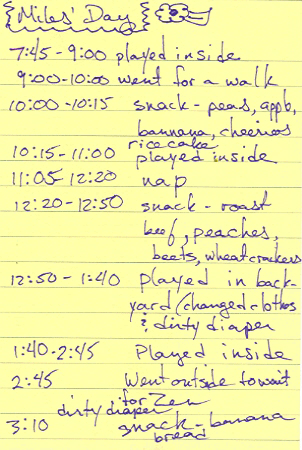 Miles' Day
7:45-9:00 played inside
9:00-10:00 went for a walk
10:00-10:15 snack - peas, apple,
bannana, cheerios
rice cake
10:15-11:00 played inside
11:05-12:20 nap
12:20-12:50 snack - roast
beef, peaches,
beets, wheat crackers
12:50-1:40 played in back-
yard/changed clothes
& dirty diaper
1:40-2:45 Played inside
2:45 Went outside to wait
for Zen
dirty diaper
3:10 snack - banana
bread